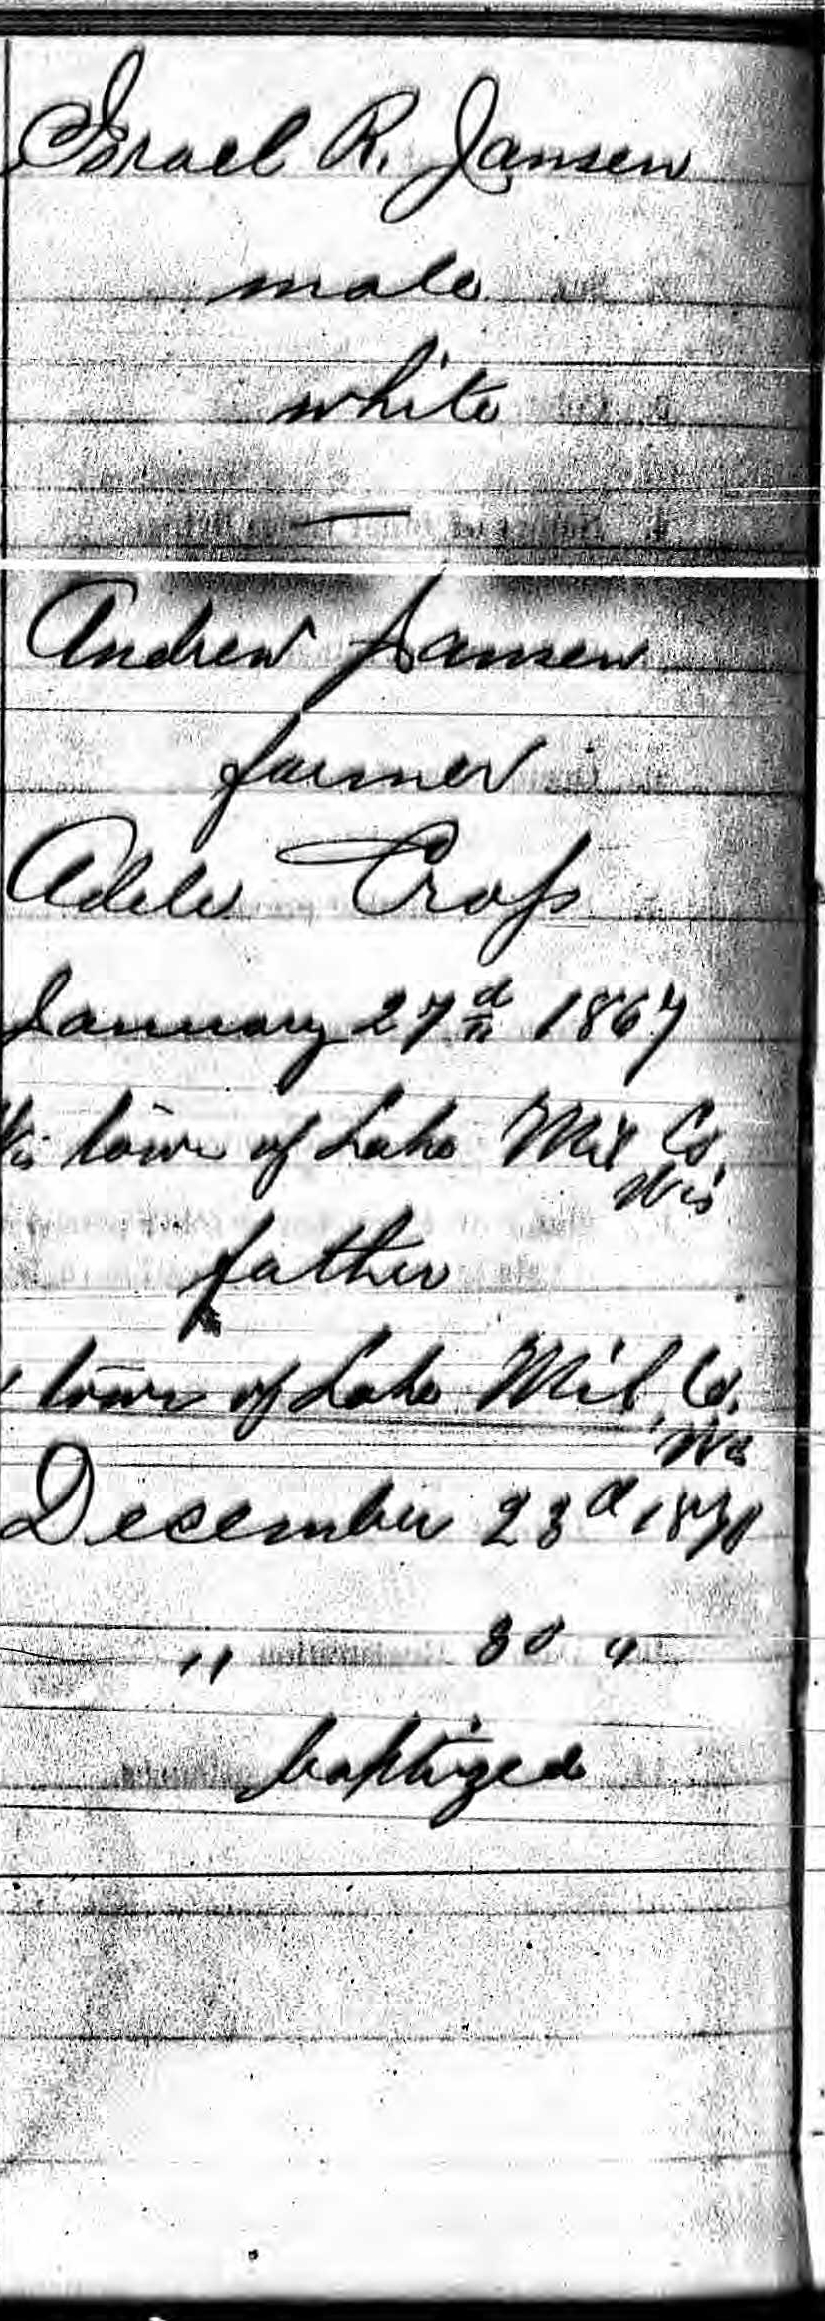 Israel R. Jansen
male
white
—
Andrew Jansen
farmer
Adele Cross
January 27th 1867
town of Lake Mil Co.
Wis
father
town of Lake Mil. Co.
Wis
December 23d 1870
" 30 "
baptized